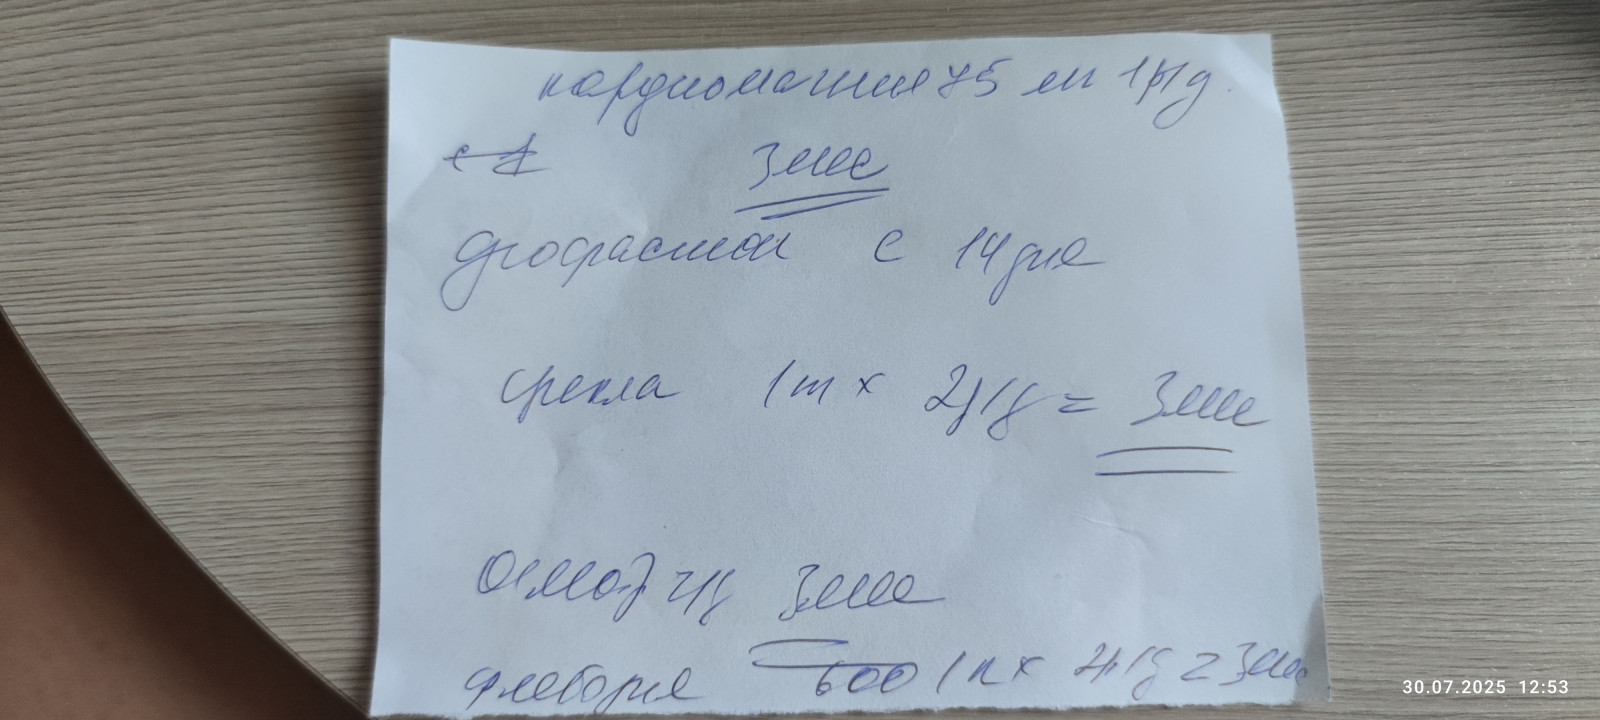 кардиомагнил 75 мг 1р/д.
3 мес
дюфастон с 14 дня
1т х 2р/д = 3 мес
3 мес
флебодиа 600 1т х 2р/д = 3 мес
30.07.2025 12:53